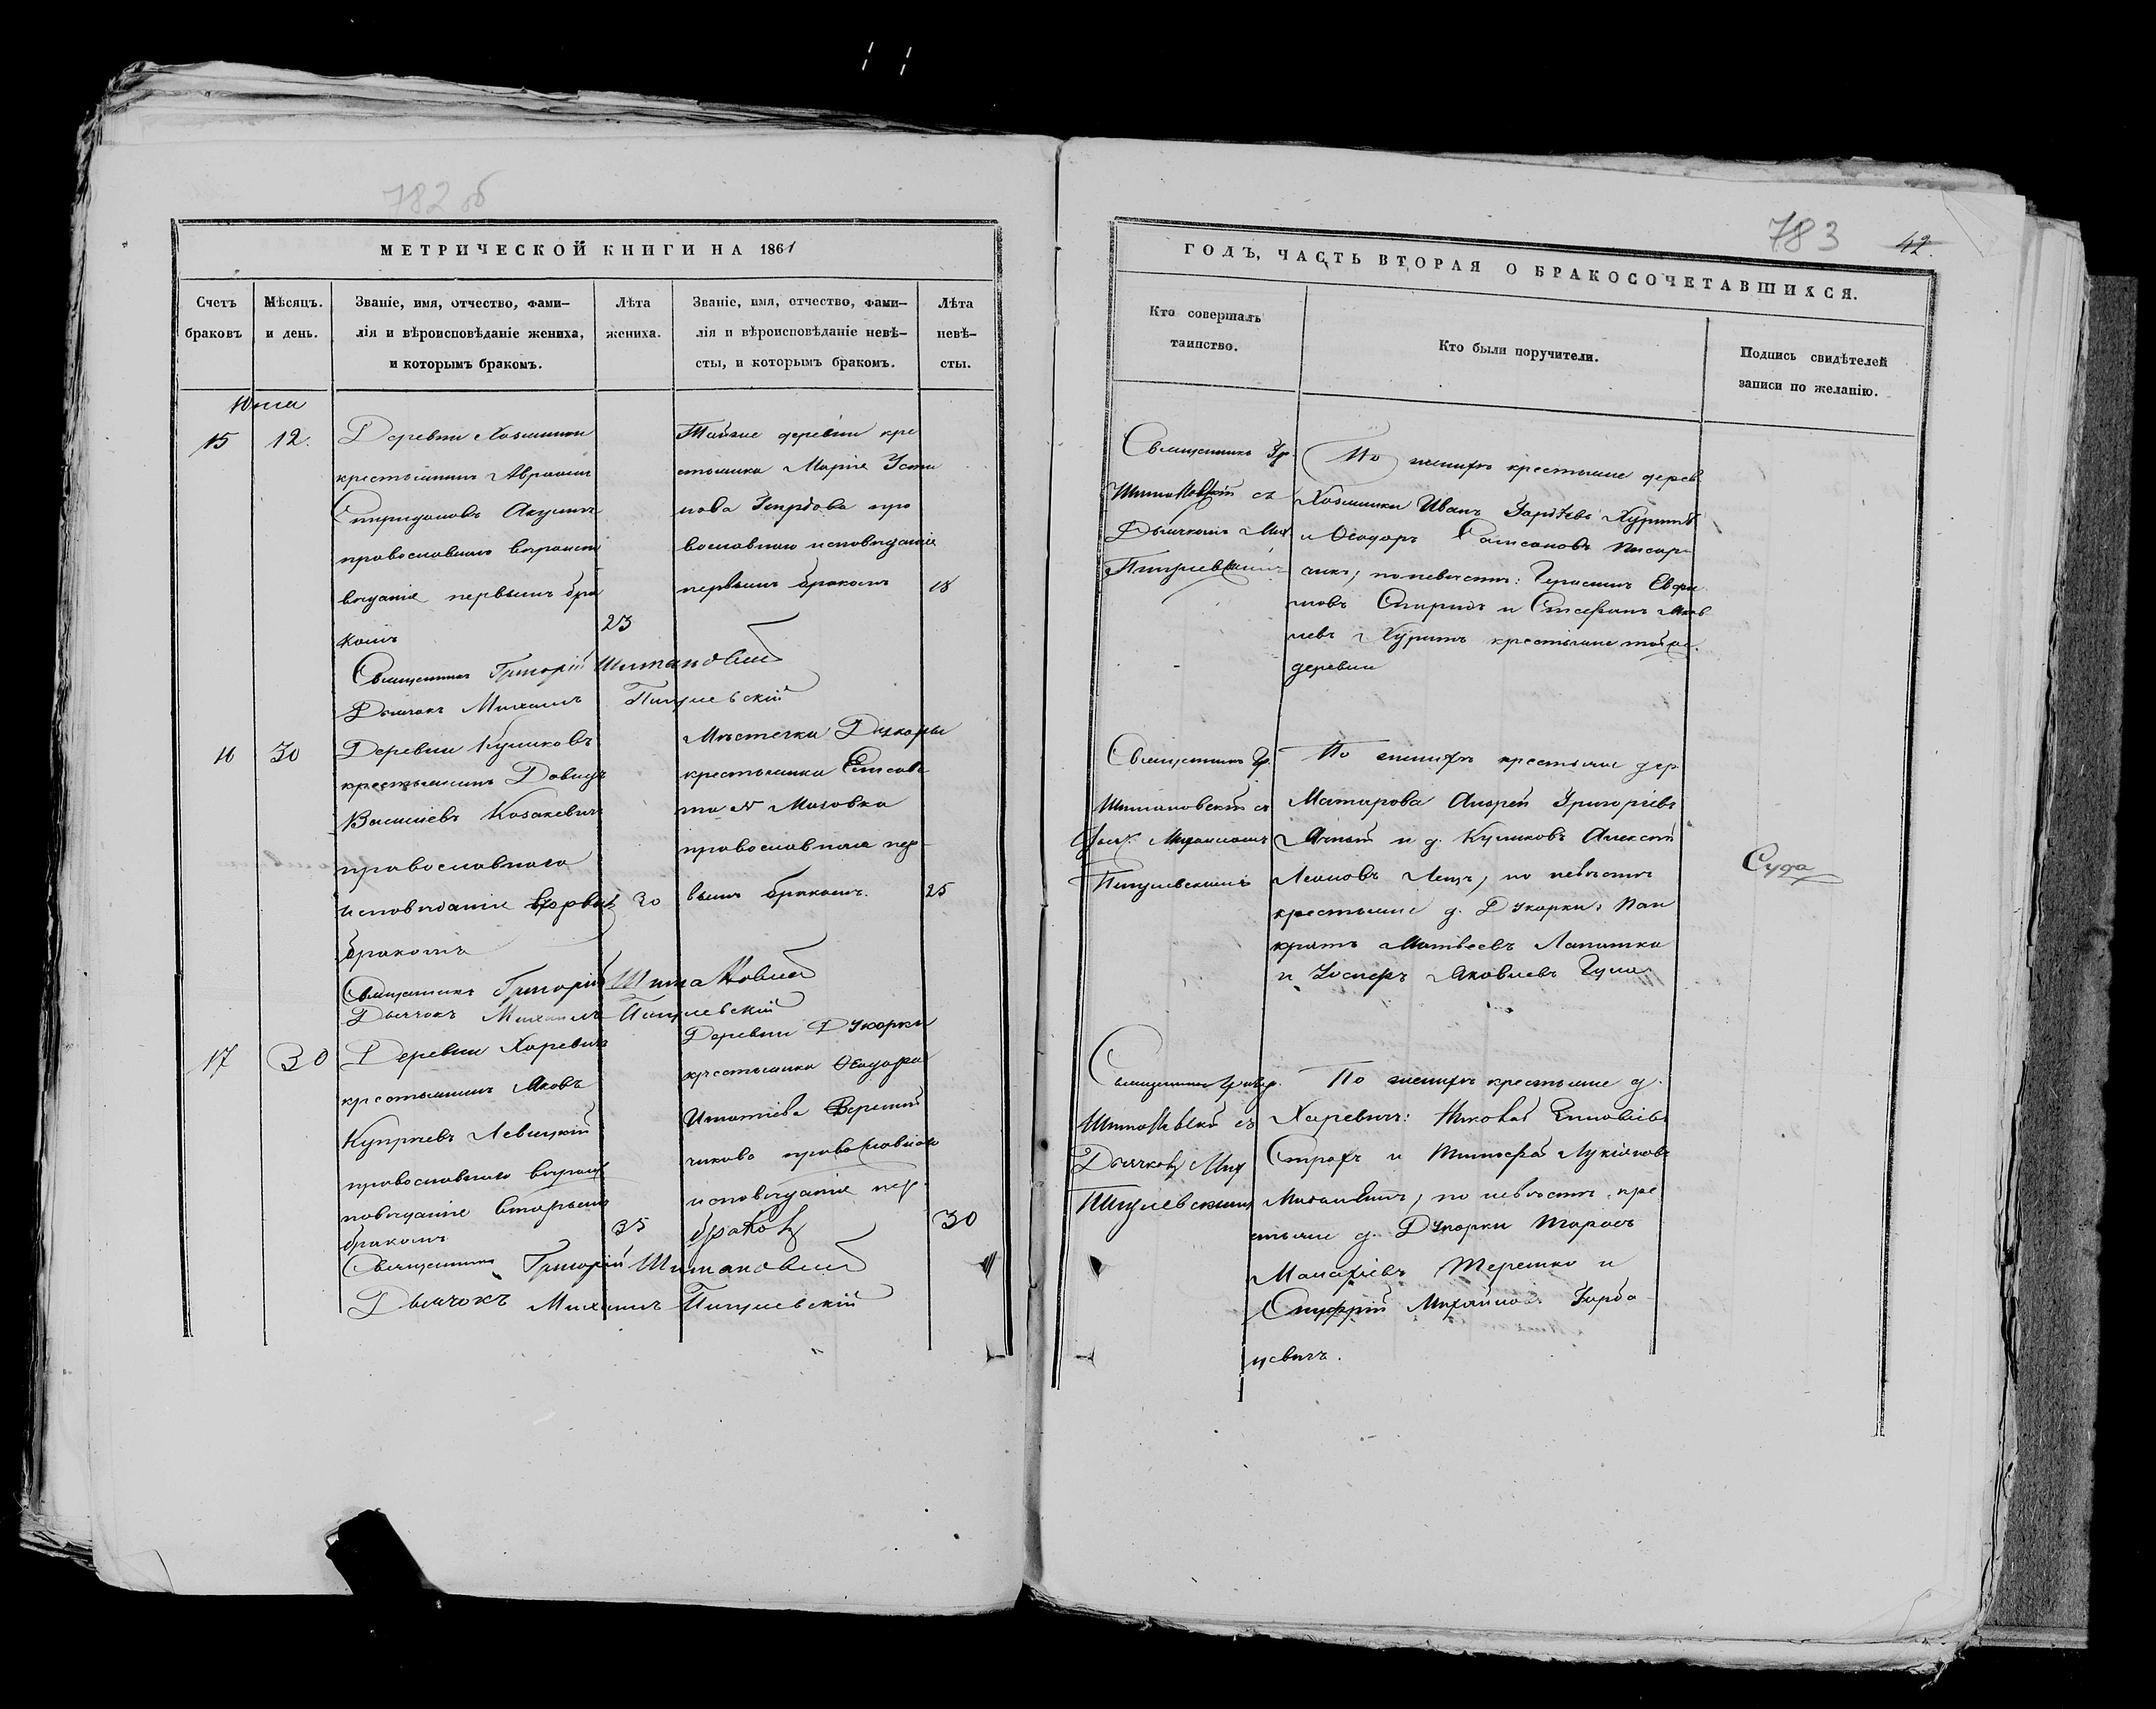 782 об
МЕТРИЧЕСКОЙ КНИГИ НА 1861
Счетъ браковъ
Мѣсяцъ. и день.
Званіе, имя, отчество, фами-
лія и вѣроисповѣданіе жениха,
и которымъ бракомъ.
Лѣта жениха.
Званіе, имя, отчество, фами-
лія и вѣроисповѣданіе невѣ-
сты, и которымъ бракомъ.
Лѣта невѣ-
сты.
15 12.
Деревни
крестьянинъ Авраамъ
Спиридоновъ Акулич
православнаго вѣроиспо
вѣданія первымъ бра
комъ
23
Тойже деревни кре
стьянка Марія Усти
нова пра
вославнаго исповѣданія
первымъ бракомъ 18
Священникъ Григорій Шимановскій
Дьячокъ Михаилъ Пицулевскій
16 30
Деревни Куликовъ
крестьянинъ Давидъ
Васильевъ Козакевичъ
православнаго
исповѣданія
бракомъ
30
Мѣстечка Дукоры
крестьянка Елисаве
та Маковка
православная пер
вымъ бракомъ. 25
Священникъ Григорій Шимановскій
Дьячокъ Михаилъ Пицулевскій
17 30
Деревни Харевичъ
крестьянинъ Яковъ
Купріевъ Левицкій
православнаго вѣроис
повѣданія вторымъ
бракомъ
35
Деревни Дукорки
крестьянка Ѳеодора
Игнатіева
православнаго
исповѣданія пер.
браком 30
Священникъ Григорій Шимановскій
Дьячокъ Михаилъ Пицулевскій
783 42.
ГОДЪ, ЧАСТЬ ВТОРАЯ О БРАКОСОЧЕТАВШИХСЯ.
Кто совершалъ
таинство.
Кто были поручители.
Подпись свидѣтелей
записи по желанію.
Священникъ Гр.
Шимановскій съ
Дьячкомъ Мих
Пицулевскимъ
По женихѣ крестьяне дерев.
Иванъ
и Ѳеодоръ Самсоновъ Писар
чикъ; по невѣстѣ: Герасимъ Евфи
мовъ и Стефанъ Яков
левъ крестьяне тойже
деревни
Священникъ Гр.
Шимановскій съ
Михаиломъ
Пицулевскимъ
По женихѣ крестьяне дер
Матарова Андрей Григорьевъ
и д. Куликовъ Алексѣй
Леоновъ Лещ; по невѣстѣ
крестьяне д. Дукорки: Пан
кратъ Матвеевъ Лапатка
и Яковлевъ
Суда
Священникъ Григор.
Шимановскій съ
Дьячком Мих
Пицулевскимъ
По женихѣ крестьяне д.
Харевичъ: Николай
и Тимофей Лукіановъ
по невѣстѣ кре
стьяне д. Дукорки Тарасъ
Терешко и
Онуфрій Михайловъ Горба
цевичъ.